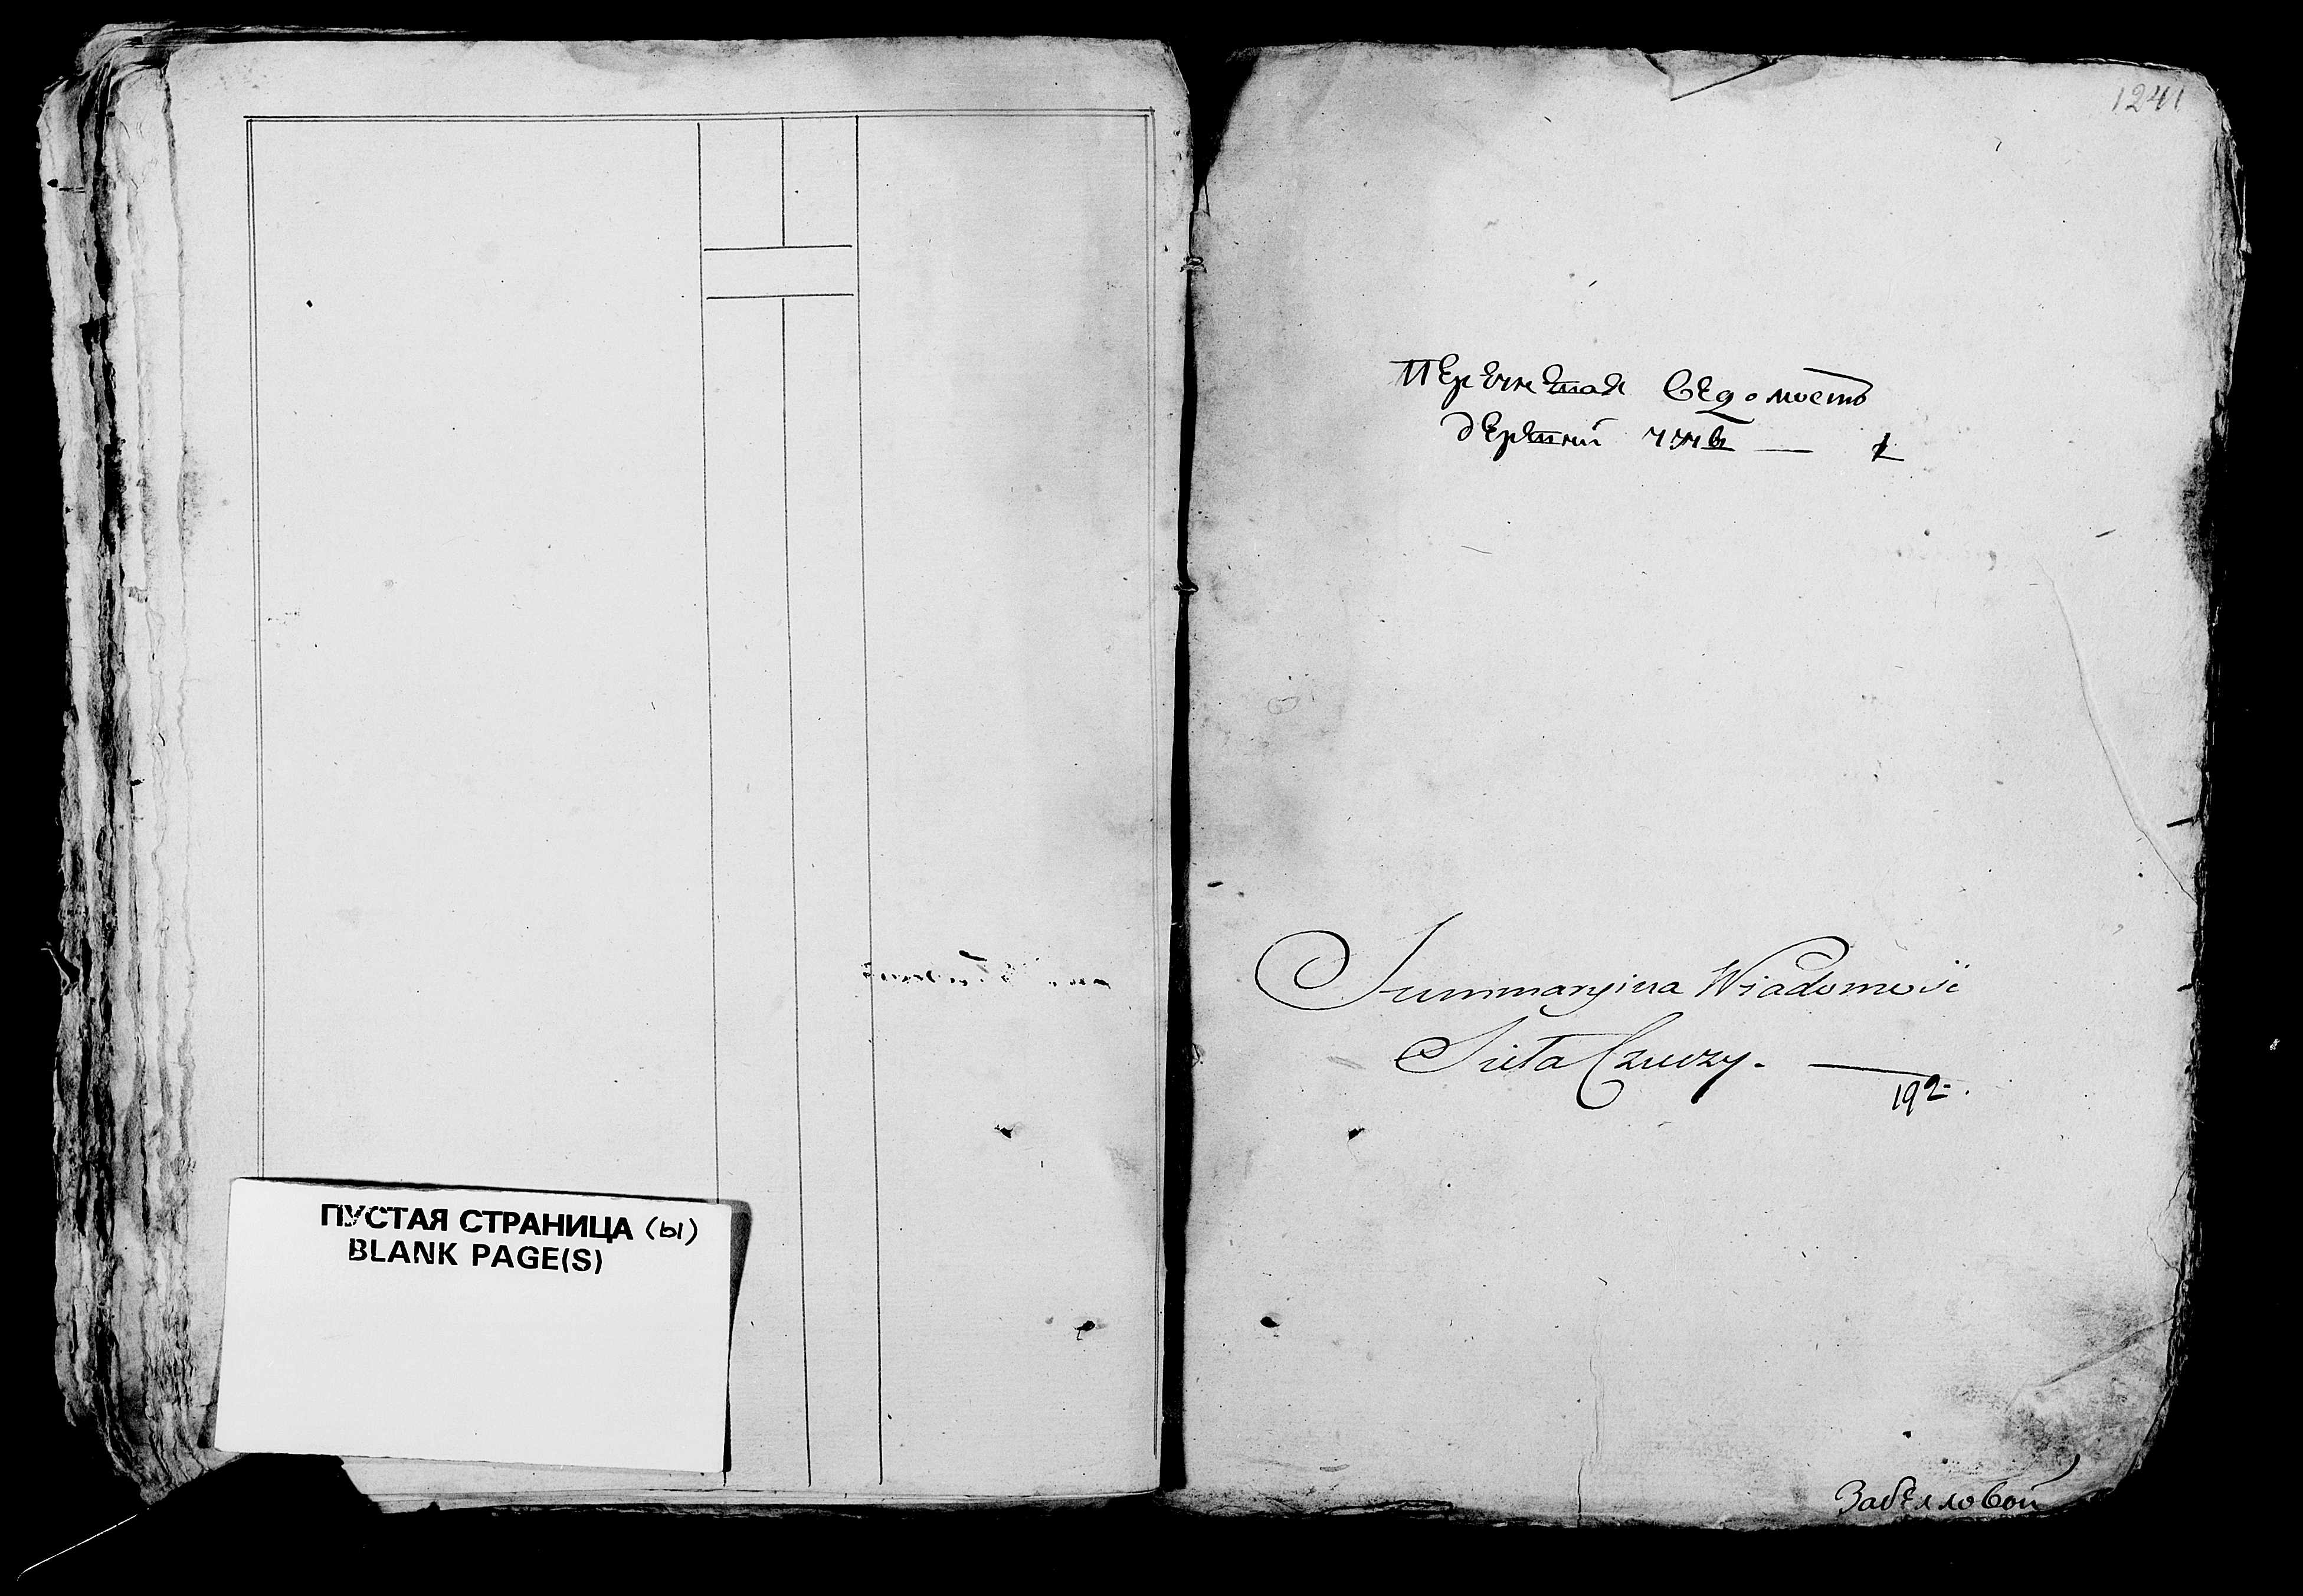 ПУСТАЯ СТРАНИЦА (ы)
BLANK PAGE(S)
1241
Перечневая ведомость
деревни
Summaryina Wiadomość
Sieła Czuczy. —
192.
Забелловой